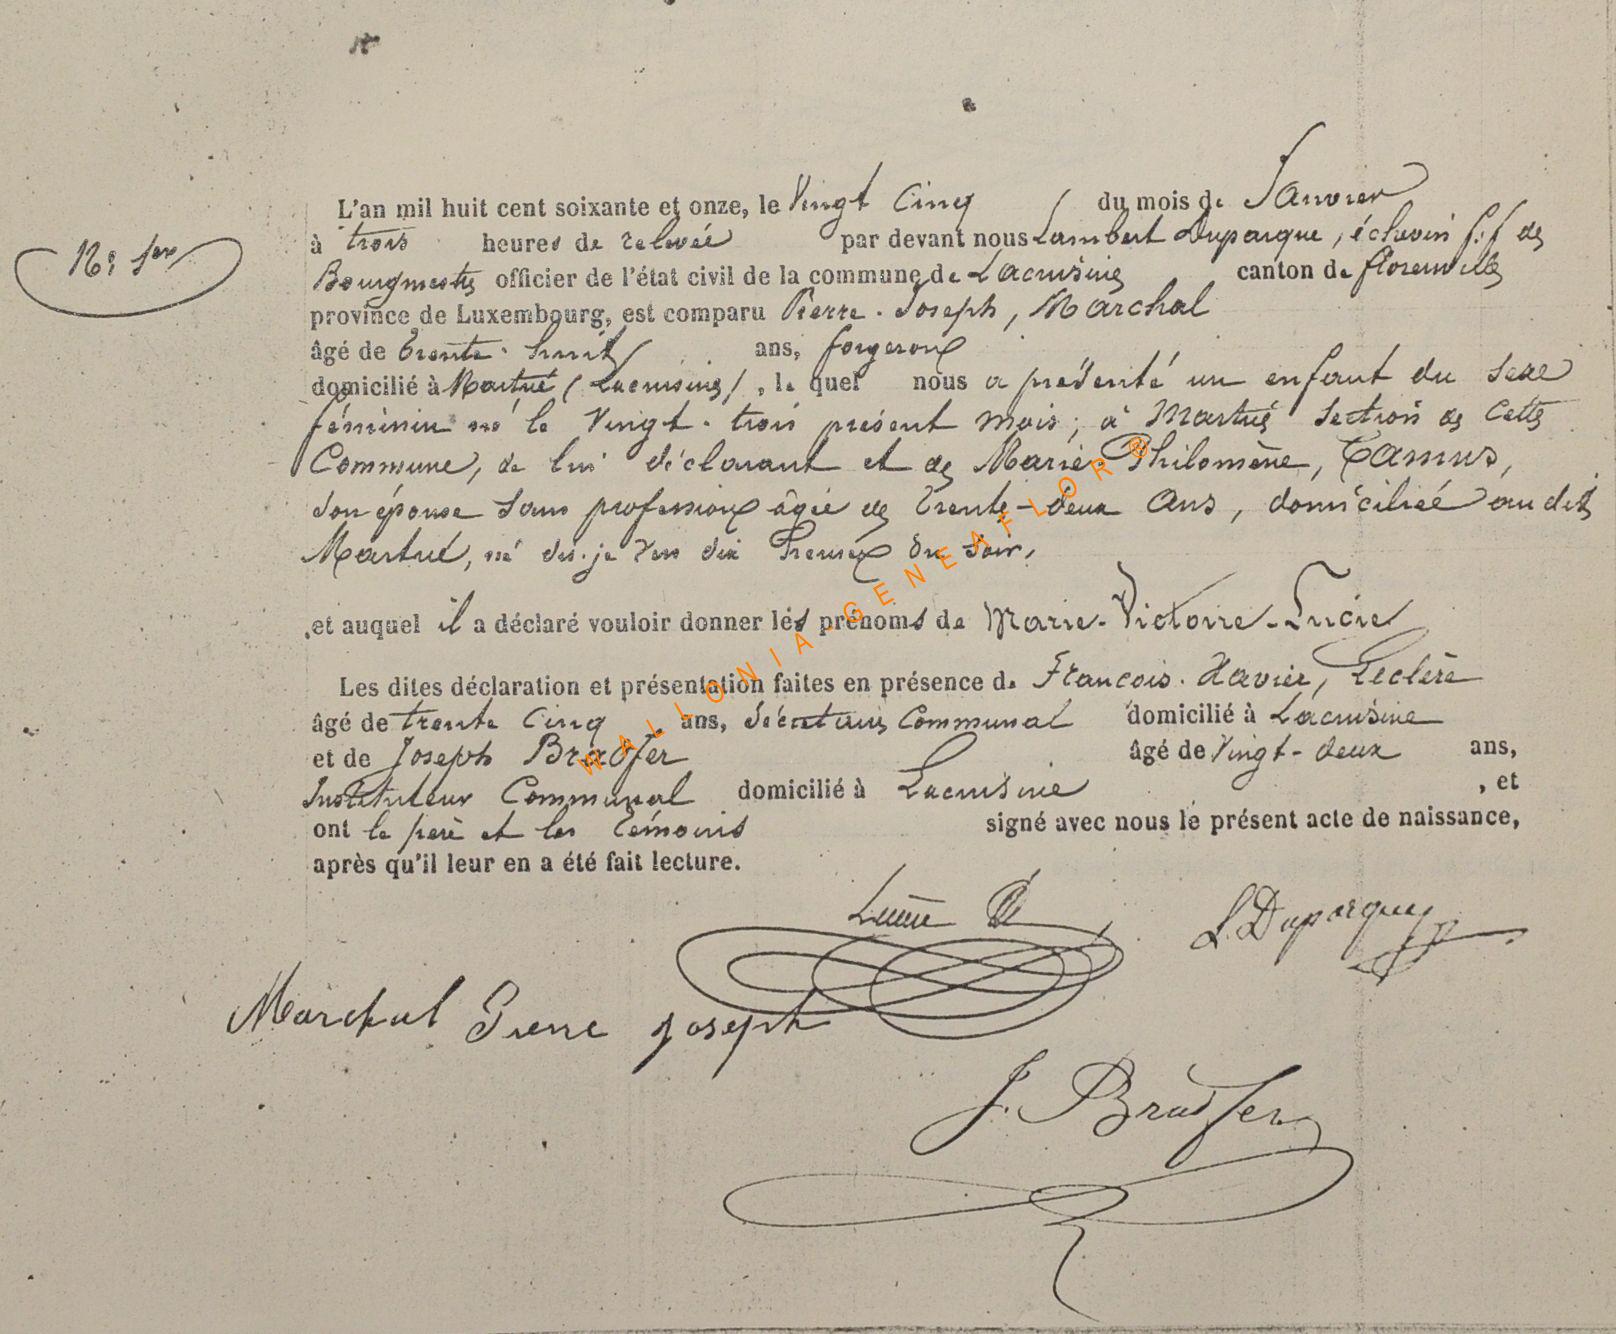 N° 1er
L'an mil huit cent soixante et onze, le Vingt Cinq du mois de Janvier
à trois heures de relevée par devant nous Lambert Duparque, échevin f.f de
Bourgmestre officier de l'état civil de la commune de Lacuisine canton de florenville
province de Luxembourg, est comparu Pierre-Joseph, Marchal
âgé de trente-huit ans, forgeron
domicilié à Martué (Lacuisine), le quel nous a présenté un enfant du sexe
féminin né le Vingt-trois présent mois, à Martué section de cette
Commune, de lui déclarant et de Marie-Philomène, Camus,
son épouse sans profession âgée de trente-deux ans, domiciliée au dit
Martué, né dis-je vers dix heures du soir,
et auquel il a déclaré vouloir donner les prénoms de Marie-Victoire-Lucie
Les dites déclaration et présentation faites en présence de François-Xavier, Leclère
âgé de trente cinq ans, Secrétaire Communal domicilié à Lacuisine
et de Joseph Bradfer âgé de Vingt-deux ans,
Instituteur Communal domicilié à Lacuisine, et
ont le père et les témoins signé avec nous le présent acte de naissance,
après qu'il leur en a été fait lecture.
L. Duparque
Marchal Pierre Joseph
J. Bradfer
WALLONIA-GENEAFLOR®